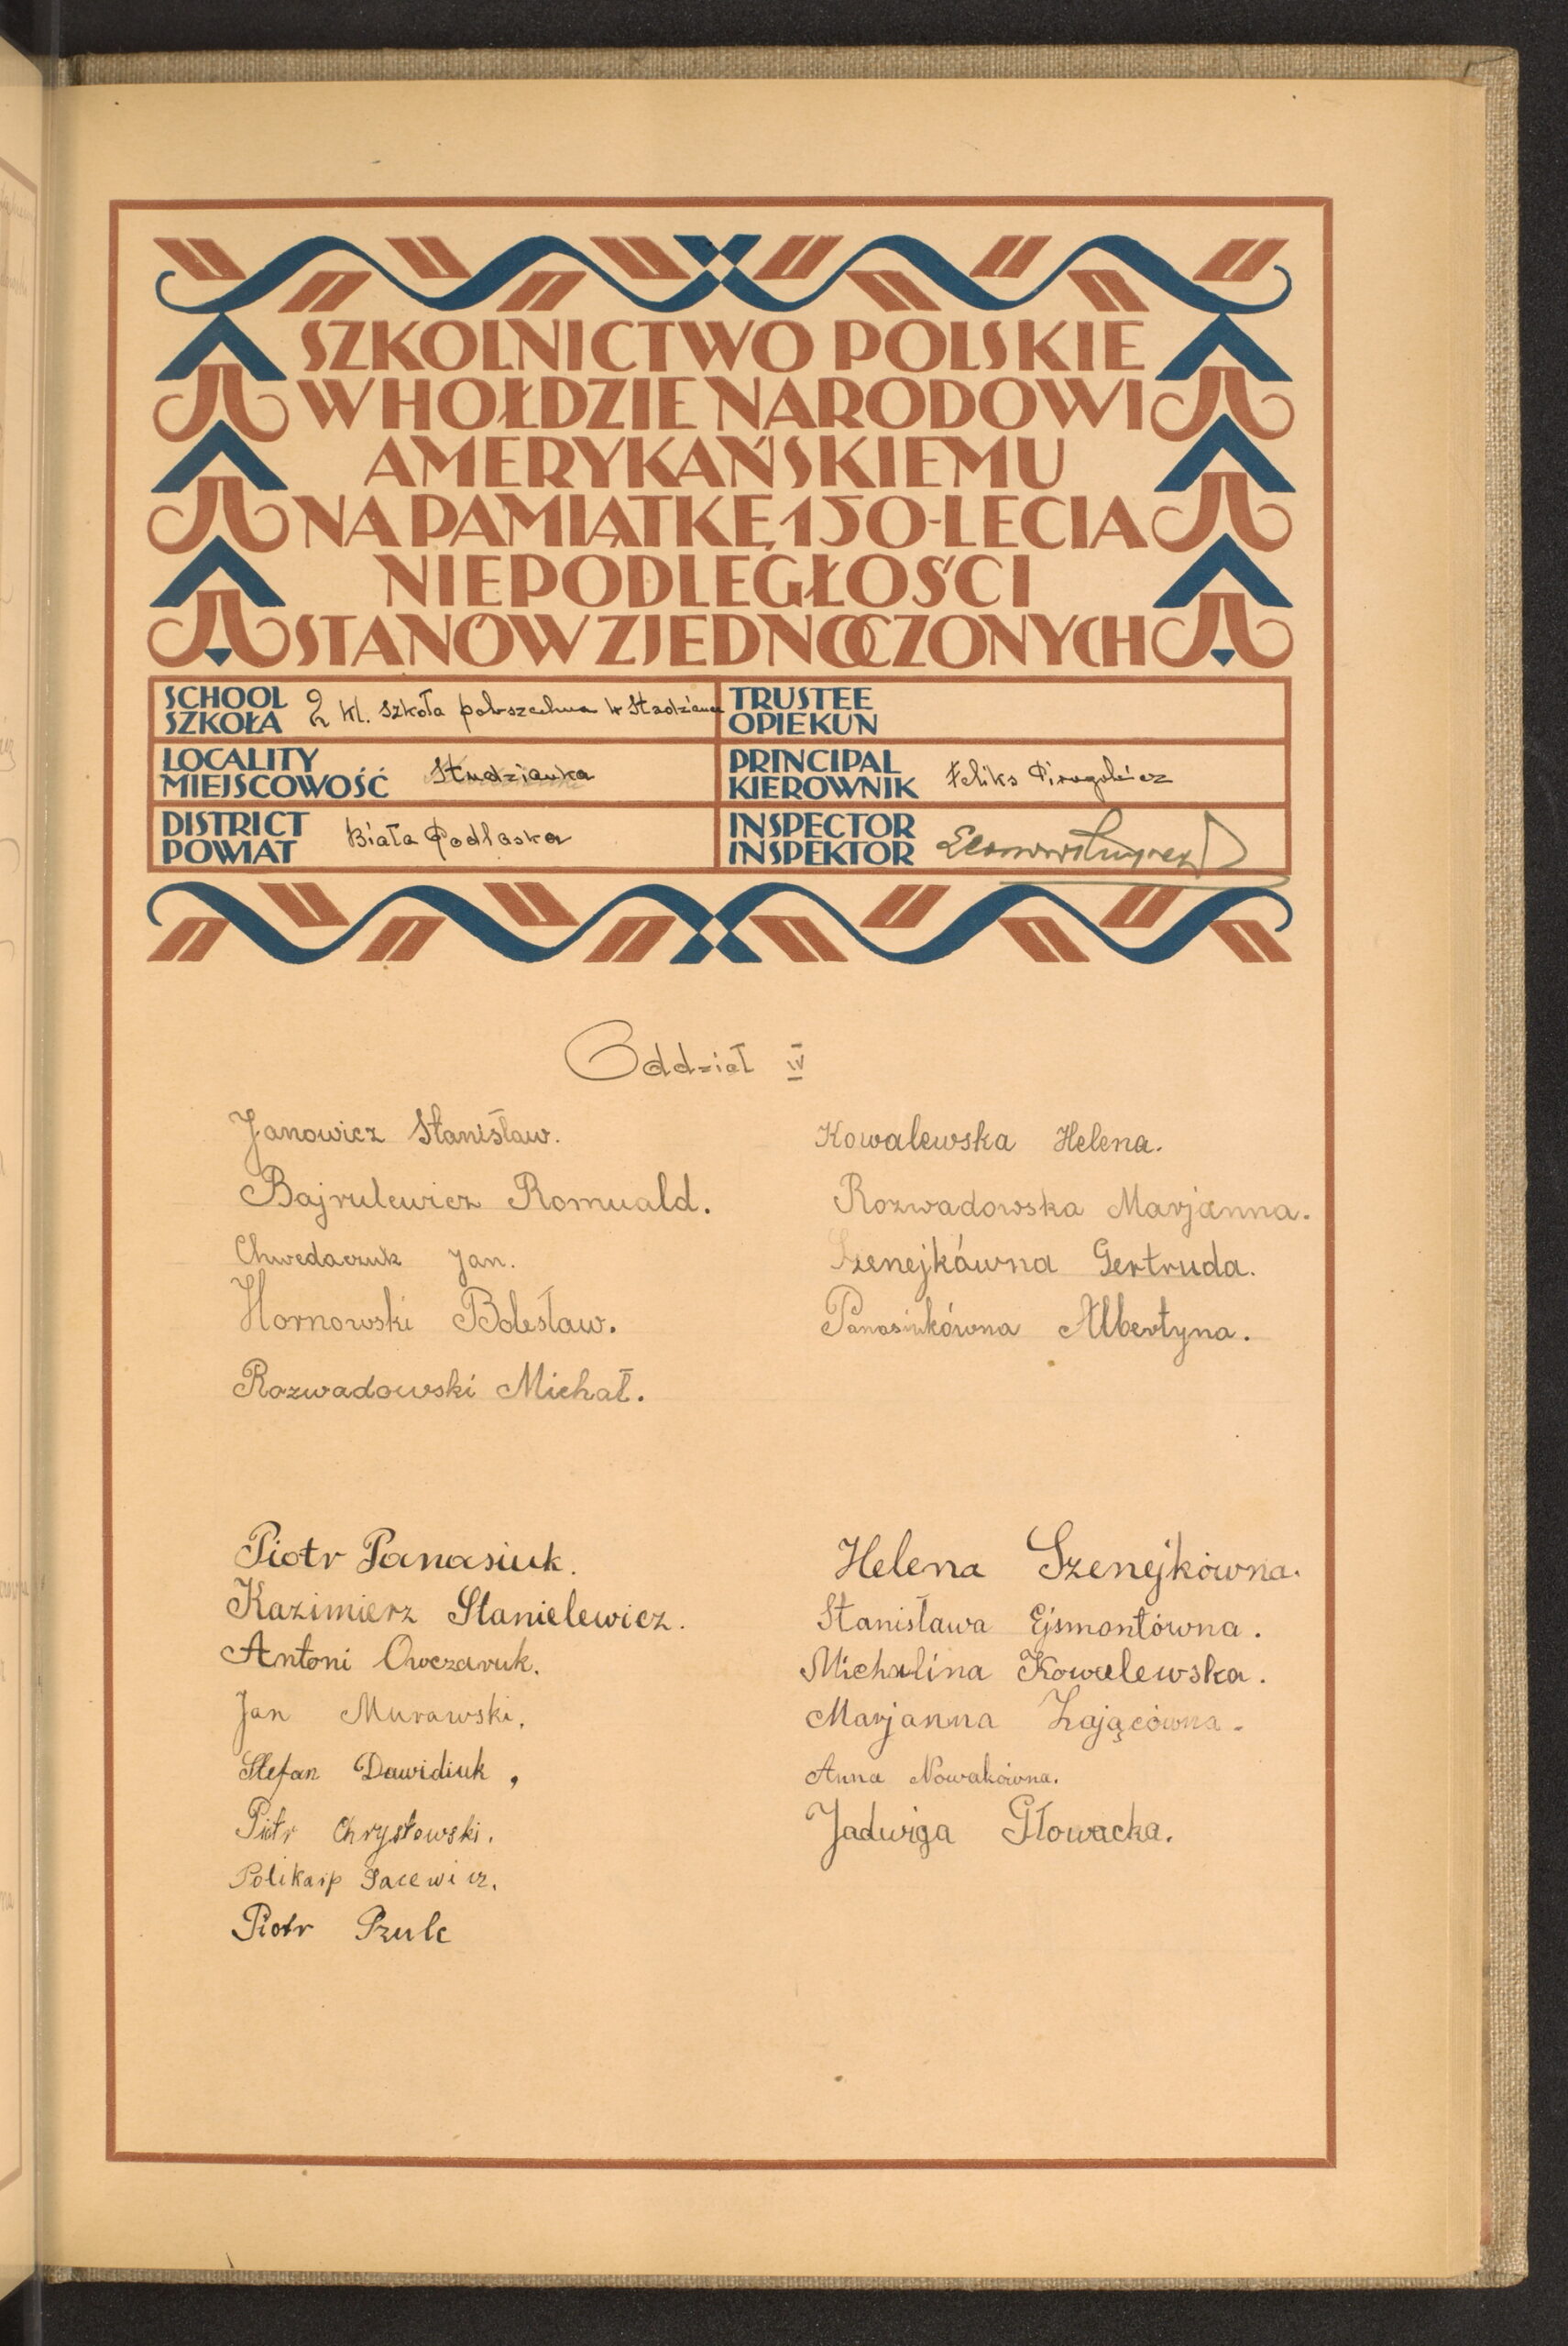 SZKOLNICTWO POLSKIE
W HOŁDZIE NARODOWI
AMERYKAŃSKIEMU
NA PAMIĄTKĘ 150-LECIA
NIEPODLEGŁOŚCI
STANÓW ZJEDNOCZONYCH
SCHOOL
SZKOŁA 2 kl. szkoła powszechna w
LOCALITY
MIEJSCOWOŚĆ Studzianka
DISTRICT
POWIAT Biała Podlaska
TRUSTEE
OPIEKUN
PRINCIPAL
KIEROWNIK Feliks
INSPECTOR
INSPEKTOR
Oddział IV
Janowicz Stanisław.
Bajrulewicz Romuald.
Chwedaczuk Jan.
Hornowski Bolesław.
Rozwadowski Michał.
Kowalewska Helena.
Rozwadowska Marjanna.
Szenejkówna Gertruda.
Panasiukówna Albertyna.
Piotr Panasiuk.
Kazimierz Stanielewicz.
Antoni Owczaruk.
Jan Murawski.
Stefan Dawidiuk,
Piotr Chrystowski.
Polikarp Sacewicz.
Piotr Szulc
Helena Szenejkówna.
Stanisława Ejsmontówna.
Michalina Kowalewska.
Marjanna Zającówna.
Anna Nowakówna.
Jadwiga Głowacka.